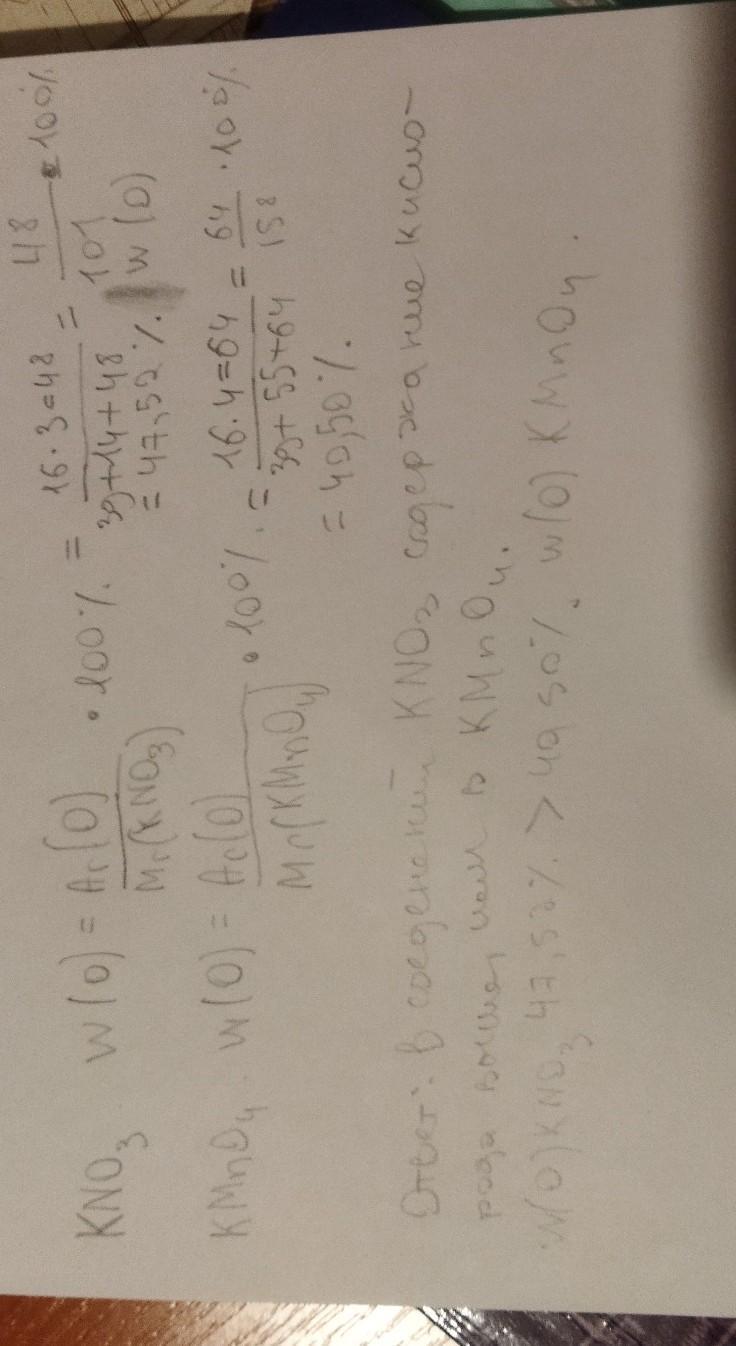 KNO₃ W(O) = Ar(O)/Mr(KNO₃) · 100% = 16·3=48/39+14+48 = 48/101 · 100%
= 47,52%. W(O)
KMnO₄. W(O) = Ar(O)/Mr(KMnO₄) · 100%. = 16·4=64/39+55+64 = 64/158 · 100%
= 40,50%.
Ответ: В соединений KNO₃ содержание кисло-
рода выше, чем в KMnO₄.
W(O)KNO₃ 47,52% > 40,50%. W(O) KMnO₄.